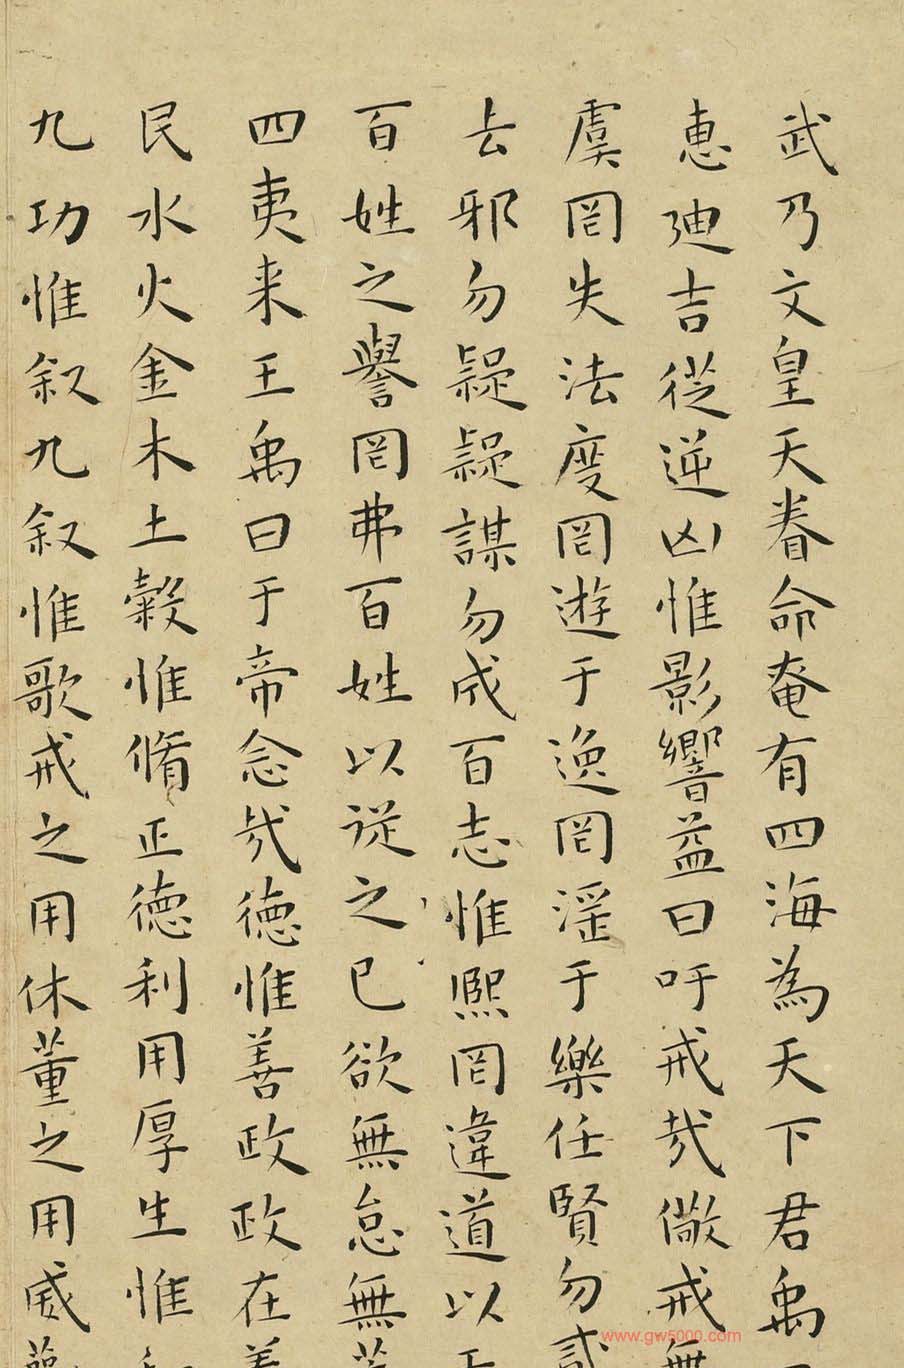 武乃文皇天眷命奄有四海為天下君禹
惠迪吉從逆凶惟影響益曰吁戒哉儆戒無
虞罔失法度罔遊于逸罔淫于樂任賢勿貳
去邪勿疑疑謀勿成百志惟熈罔違道以
百姓之譽罔弗百姓以從之已欲無怠無荒
四夷来王禹曰于帝念哉德惟善政政在養
民水火金木土穀惟脩正德利用厚生惟
九功惟叙九叙惟歌戒之用休董之用威
www.gw5000.com